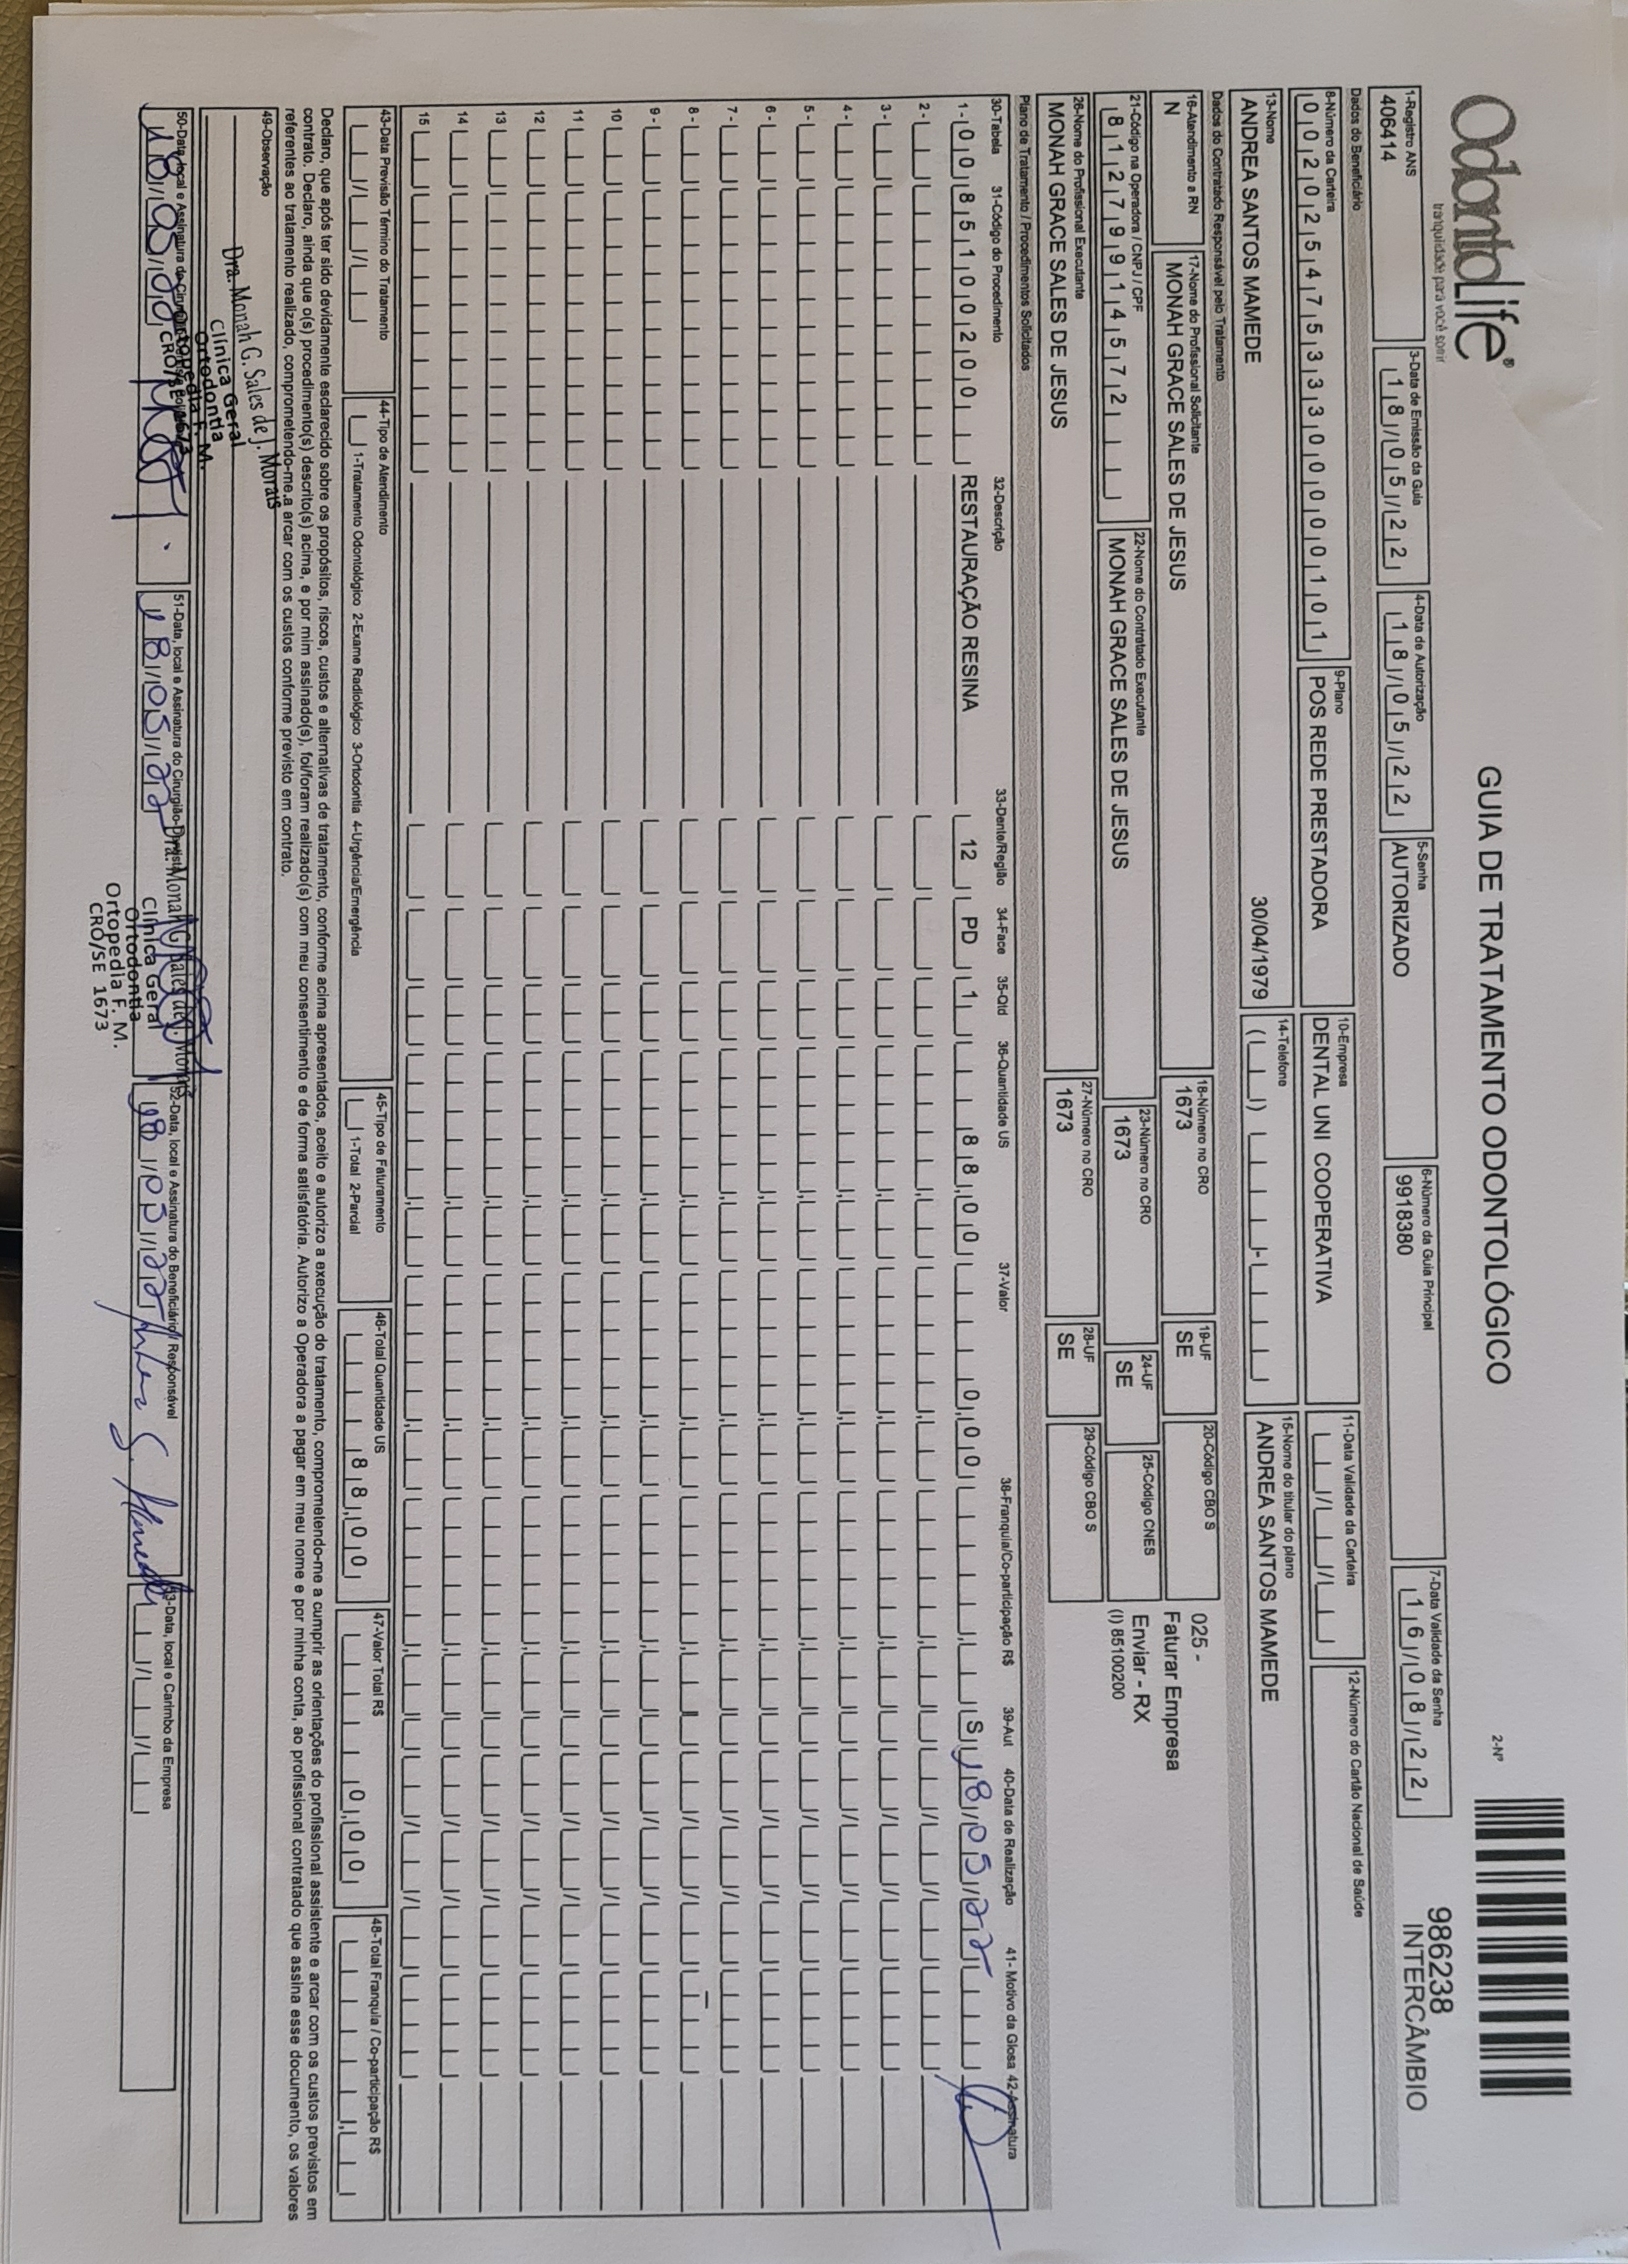 OdontoLife®
tranquilidade para você sorrir
GUIA DE TRATAMENTO ODONTOLÓGICO
2-Nº
986238
INTERCÂMBIO
1-Registro ANS
406414
3-Data de Emissão da Guia
18/05/22
4-Data de Autorização
18/05/22
5-Senha
AUTORIZADO
6-Número da Guia Principal
9918380
7-Data Validade da Senha
16/08/22
Dados do Beneficiário
8-Número da Carteira
00202547533300000101
9-Plano
POS REDE PRESTADORA
10-Empresa
DENTAL UNI COOPERATIVA
11-Data Validade da Carteira
12-Número do Cartão Nacional de Saúde
13-Nome
ANDREA SANTOS MAMEDE
30/04/1979
14-Telefone
15-Nome do titular do plano
ANDREA SANTOS MAMEDE
Dados do Contratado Responsável pelo Tratamento
16-Atendimento a RN
N
17-Nome do Profissional Solicitante
MONAH GRACE SALES DE JESUS
18-Número no CRO
1673
19-UF
SE
20-Código CBO S
025 -
Faturar Empresa
Enviar - RX
(I) 85100200
21-Código na Operadora / CNPJ / CPF
81279914572
22-Nome do Contratado Executante
MONAH GRACE SALES DE JESUS
23-Número no CRO
1673
24-UF
SE
25-Código CNES
26-Nome do Profissional Executante
MONAH GRACE SALES DE JESUS
27-Número no CRO
1673
28-UF
SE
29-Código CBO S
Plano de Tratamento / Procedimentos Solicitados
30-Tabela 31-Código do Procedimento 32-Descrição 33-Dente/Região 34-Face 35-Qtd 36-Quantidade US 37-Valor 38-Franquia/Co-participação R$ 39-Aut 40-Data de Realização 41- Motivo da Glosa 42-Assinatura
1- 00 85100200 RESTAURAÇÃO RESINA 12 PD 1 88,00 0,00 S 18/05/22
2-
3-
4-
5-
6-
7-
8-
9-
10
11
12
13
14
15
43-Data Previsão Término do Tratamento
44-Tipo de Atendimento
1-Tratamento Odontológico 2-Exame Radiológico 3-Ortodontia 4-Urgência/Emergência
45-Tipo de Faturamento
1-Total 2-Parcial
46-Total Quantidade US
88,00
47-Valor Total R$
0,00
48-Total Franquia / Co-participação R$
Declaro, que após ter sido devidamente esclarecido sobre os propósitos, riscos, custos e alternativas de tratamento, conforme acima apresentados, aceito e autorizo a execução do tratamento, comprometendo-me a cumprir as orientações do profissional assistente e arcar com os custos previstos em
contrato. Declaro, ainda que o(s) procedimento(s) descrito(s) acima, e por mim assinado(s), foi/foram realizado(s) com meu consentimento e de forma satisfatória. Autorizo a Operadora a pagar em meu nome e por minha conta, ao profissional contratado que assina esse documento, os valores
referentes ao tratamento realizado, comprometendo-me a arcar com os custos conforme previsto em contrato.
49-Observação
Dra. Monah G. Sales de J. Morais
Clínica Geral
Ortodontia
Ortopedia F. M.
CRO/SE 1673
50-Data, local e Assinatura do
18/05/22
51-Data, local e Assinatura do Cirurgião-Dentista
18/05/22
Dra. Monah G. Sales de J. Morais
Clínica Geral
Ortodontia
Ortopedia F. M.
CRO/SE 1673
52-Data, local e Assinatura do Beneficiário / Responsável
18/05/22
53-Data, local e Carimbo da Empresa